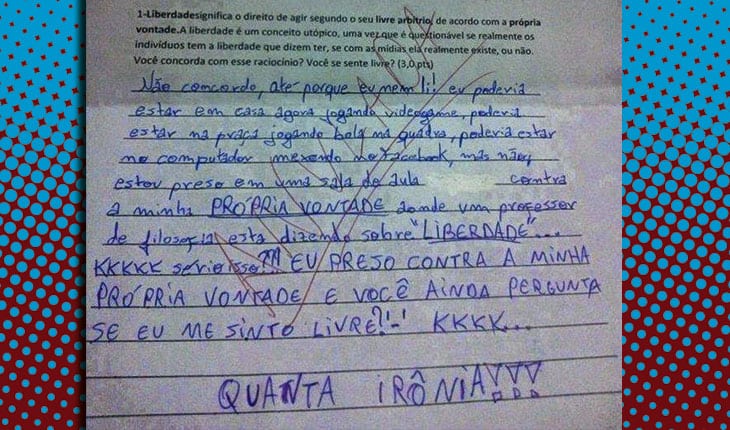 1-Liberdadesignifica o direito de agir segundo o seu livre arbítrio, de acordo com a própria
vontade.A liberdade é um conceito utópico, uma vez que é questionável se realmente os
indivíduos tem a liberdade que dizem ter, se com as mídias ela realmente existe, ou não.
Você concorda com esse raciocínio? Você se sente livre? (3,0 pts)
Não concordo, até porque eu nem li! eu poderia
estar em casa agora jogando videogame, poderia
estar na praça jogando bola na quadra, poderia estar
no computador mexendo no Facebook, mas não,
estou preso em uma sala de aula contra
a minha PRÓPRIA VONTADE aonde um professor
de filosofia esta dizendo sobre "LIBERDADE"...
KKKKK serio isso?!! EU PRESO CONTRA A MINHA
PRÓPRIA VONTADE E VOCÊ AINDA PERGUNTA
SE EU ME SINTO LIVRE?!'-' KKKK...
QUANTA IRÔNIA!!!